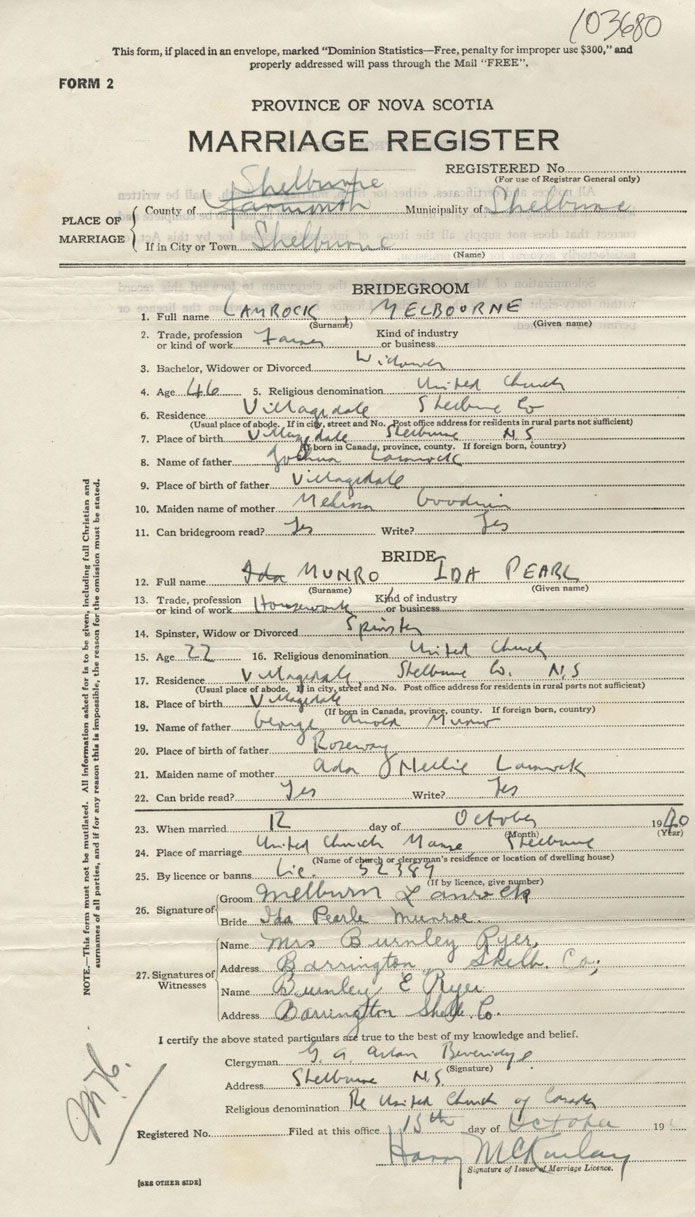 103680
This form, if placed in an envelope, marked "Dominion Statistics—Free, penalty for improper use $300," and
properly addressed will pass through the Mail "FREE".
FORM 2
PROVINCE OF NOVA SCOTIA
MARRIAGE REGISTER
REGISTERED No.
(For use of Registrar General only)
PLACE OF MARRIAGE
Shelburne
County of Yarmouth Municipality of Shelburne
If in City or Town Shelburne
(Name)
BRIDEGROOM
1. Full name LAMROCK MELBOURNE
(Surname) (Given name)
2. Trade, profession or kind of work Farmer Kind of industry or business
3. Bachelor, Widower or Divorced Widower
4. Age 46 5. Religious denomination United Church
6. Residence Villagedale Shelburne Co
(Usual place of abode. If in city, street and No. Post office address for residents in rural parts not sufficient)
7. Place of birth Villagedale Shelburne N S
(If born in Canada, province, county. If foreign born, country)
8. Name of father Joshua Lamrock
9. Place of birth of father Villagedale
10. Maiden name of mother Melissa Goodwin
11. Can bridegroom read? Yes Write? Yes
BRIDE
12. Full name Ida MUNRO IDA PEARL
(Surname) (Given name)
13. Trade, profession or kind of work Housework Kind of industry or business
14. Spinster, Widow or Divorced Spinster
15. Age 22 16. Religious denomination United Church
17. Residence Villagedale Shelburne Co. N S
(Usual place of abode. If in city, street and No. Post office address for residents in rural parts not sufficient)
18. Place of birth Villagedale
(If born in Canada, province, county. If foreign born, country)
19. Name of father George Arnold Munro
20. Place of birth of father Roseway
21. Maiden name of mother Ada Nellie Lamrock
22. Can bride read? Yes Write? Yes
23. When married 12 day of October 1940
(Month) (Year)
24. Place of marriage United Church Manse Shelburne
(Name of church or clergyman's residence or location of dwelling house)
25. By licence or banns Lic. 52389
(If by licence, give number)
26. Signature of
Groom Melburn Lamrock
Bride Ida Pearle Munroe.
27. Signatures of Witnesses
Name Mrs Burnley Ryer,
Address Barrington, Shelb. Co;
Name Burnley E Ryer
Address Barrington Shelb. Co.
I certify the above stated particulars are true to the best of my knowledge and belief.
Clergyman G. A. Beveridge
(Signature)
Address Shelburne N.S
Religious denomination The United Church of Canada
Registered No. Filed at this office 15th day of October 19
Harry McKinlay
Signature of Issuer of Marriage Licence.
[SEE OTHER SIDE]
NOTE.—This form must not be mutilated. All information asked for is to be given, including full Christian and
surnames of all parties, and if for any reason this is impossible, the reason for the omission must be stated.